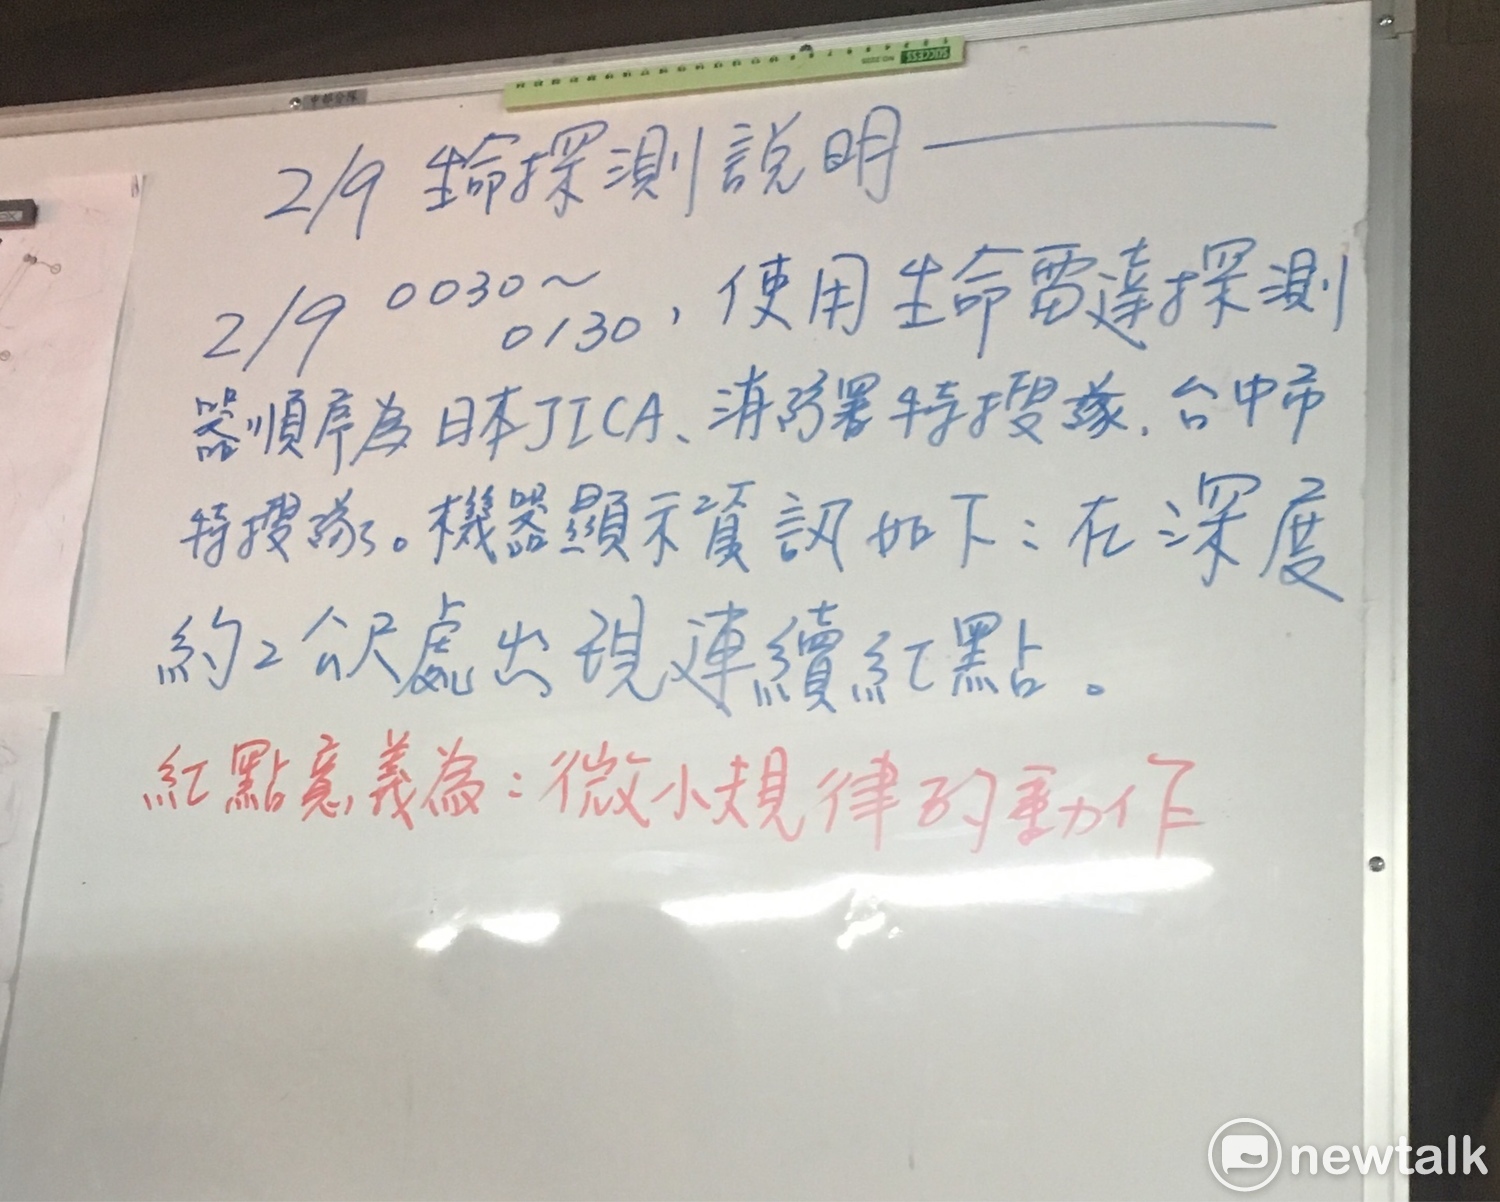 SUCCESS
2/9 生命探測說明
2/9 0030~0130, 使用生命雷達探測
器順序為日本JICA、消防署特搜隊、台中市
特搜隊。機器顯示資訊如下:在深度
約2公尺處出現連續紅點。
紅點意義為:微小規律的動作
newtalk